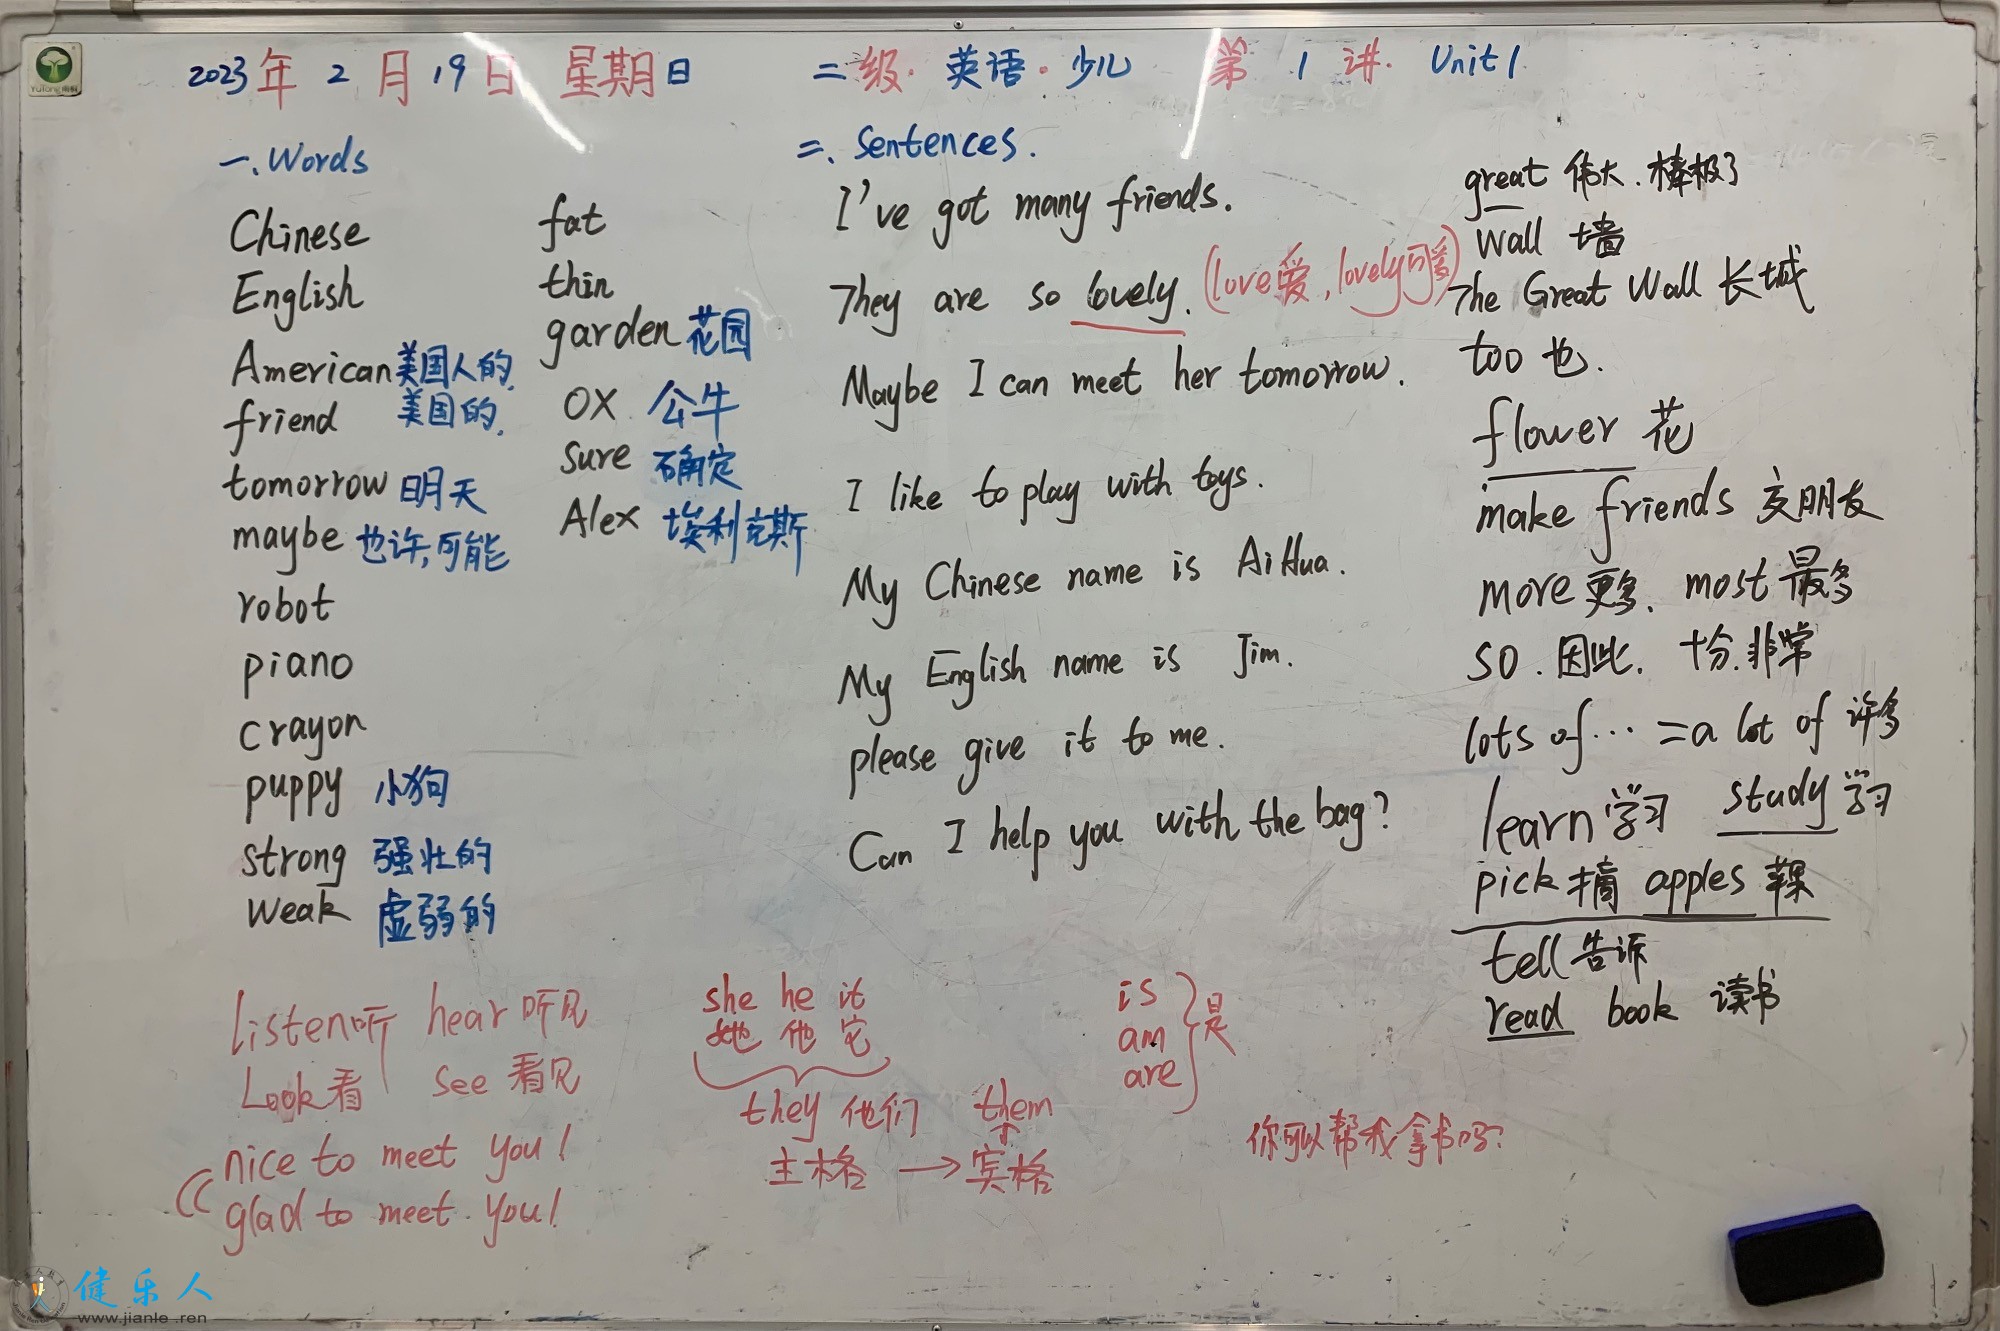 2023年2月19日 星期日 二级·英语·少儿 第1讲. Unit1
一.Words
Chinese
English
American美国人的,
美国的,
friend
tomorrow 明天
maybe 也许,可能
robot
piano
crayon
puppy 小狗
strong 强壮的
weak 虚弱的
fat
thin
garden 花园
OX 公牛
sure 确定
Alex 埃利克斯
二. Sentences.
I've got many friends.
They are so lovely. (love爱, lovely可爱)
Maybe I can meet her tomorrow.
I like to play with toys.
My Chinese name is AiHua.
My English name is Jim.
please give it to me.
Can I help you with the bag?
great 伟大.棒极了
Wall 墙
The Great Wall 长城
too 也.
flower 花
make friends 交朋友
more 更多. most 最多
so. 因此. 十分.非常
lots of… =a lot of 许多
learn 学习 study 学习
pick 摘 apples 苹果
tell 告诉
read book 读书
listen听 hear 听见
Look看 see 看见
nice to meet you!
glad to meet you!
she he it
她 他 它
they 他们 them
主格 → 宾格
is
am 是
are
你可以帮我拿书吗?
Yutong
健乐人
www.jianle.ren